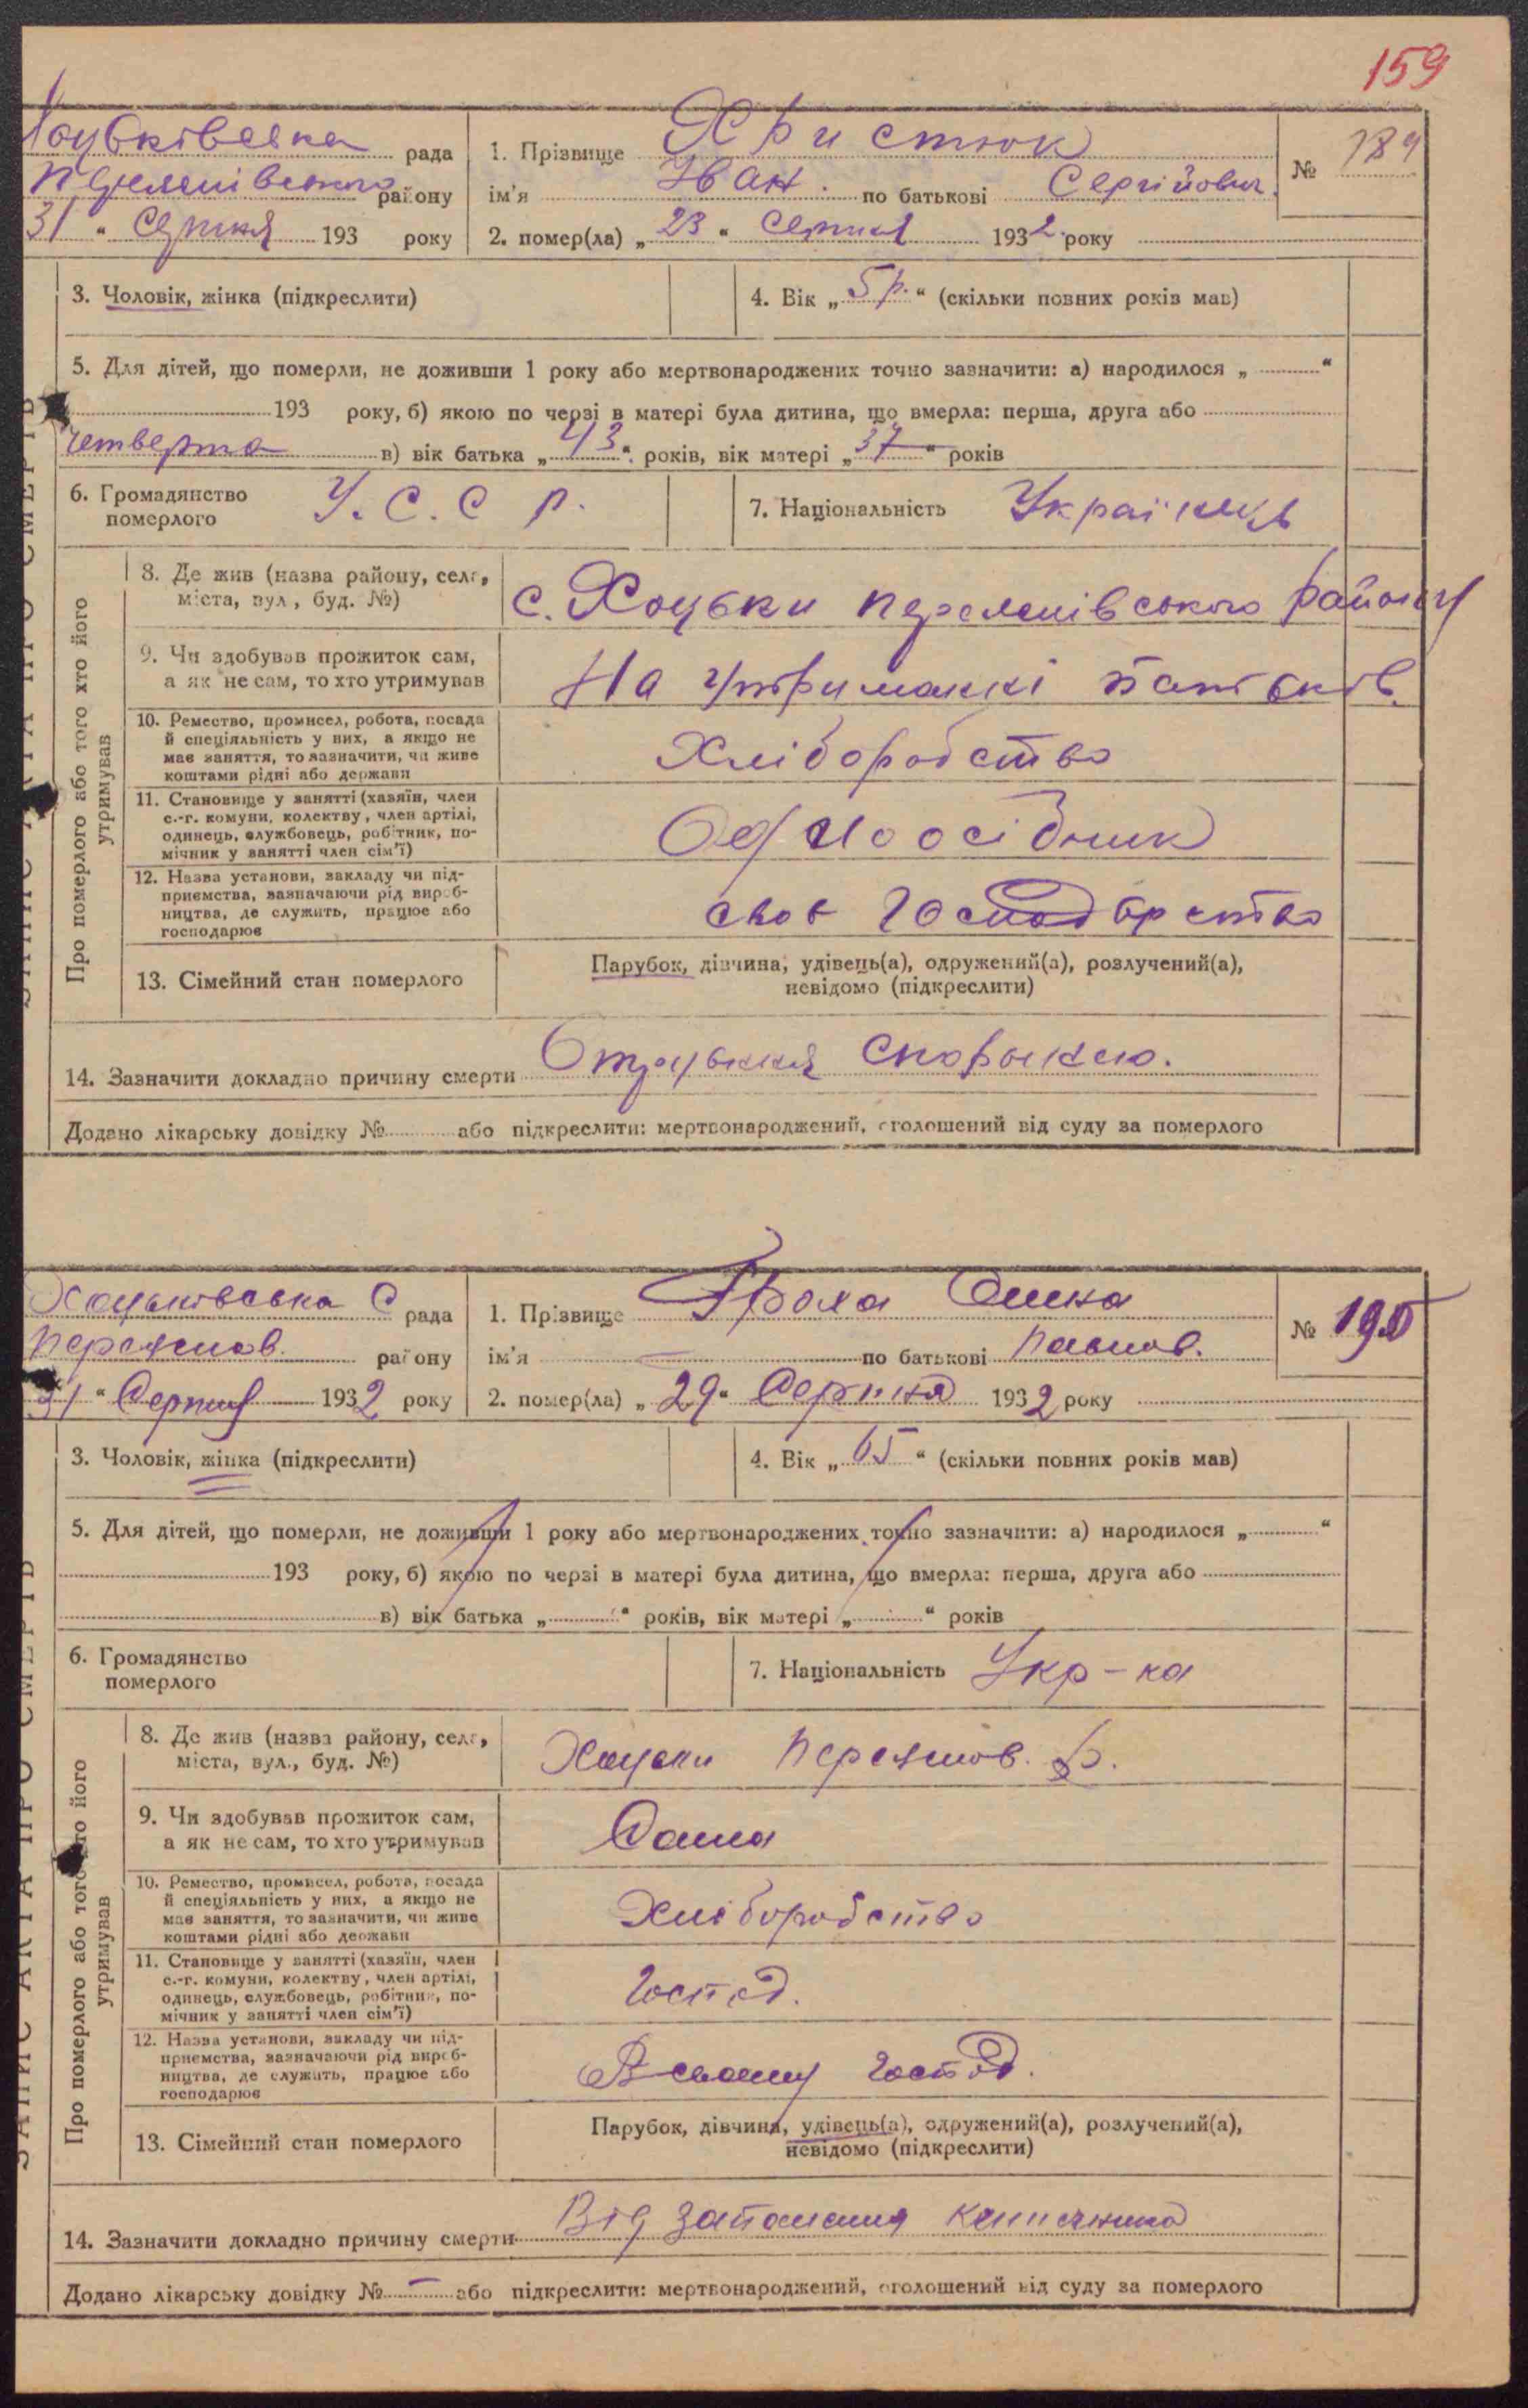 159
Хоцьківська рада
Переяслівського району
31 " Серпня 193 року
1. Прізвище Христюк
ім'я Іван. по батькові Сергійович.
2. помер(ла) „ 23 " Серпня 1932. року
№ 189
3. Чоловік, жінка (підкреслити)
4. Вік „ 5 р. " (скільки повних років мав)
5. Для дітей, що померли, не доживши 1 року або мертвонароджених точно зазначити: а) народилося „ "
193 року, б) якою по черзі в матері була дитина, що вмерла: перша, друга або
четверта в) вік батька „ 43 " років, вік матері „ 37 " років
6. Громадянство
померлого
У. С. С Р.
7. Національність Українець
ЗАПИС АКТА ПРО СМЕРТЬ
Про померлого або того хто його
утримував
8. Де жив (назва району, села,
міста, вул., буд. №)
с. Хоцьки Переяслівського району
9. Чи здобував прожиток сам,
а як не сам, то хто утримував
На утриманні батьків.
10. Ремество, промисел, робота, посада
й спеціяльність у них, а якщо не
має заняття, то зазначити, чи живе
коштами рідні або держави
Хліборобство
11. Становище у занятті (хазяїн, член
с.-г. комуни, колектву, член артілі,
одинець, службовець, робітник, по-
мічник у занятті член сім'ї)
Одноосібник
12. Назва установи, закладу чи під-
приємства, зазначаючи рід вироб-
ництва, де служить, працює або
господарює
своє Господарство
13. Сімейний стан померлого
Парубок, дівчина, удівець(а), одружений(а), розлучений(а),
невідомо (підкреслити)
14. Зазначити докладно причину смерти Отруєння спориньею.
Додано лікарську довідку № або підкреслити: мертвонароджений, оголошений від суду за померлого
Хоцьківська С рада
Переяслов. району
31 " Серпня 1932 року
1. Прізвище
ім'я — по батькові Павлов.
2. помер(ла) „ 29 " Серпня 1932 року
№ 190
3. Чоловік, жінка (підкреслити)
4. Вік „ 65 " (скільки повних років мав)
5. Для дітей, що померли, не доживши 1 року або мертвонароджених точно зазначити: а) народилося „ "
193 року, б) якою по черзі в матері була дитина, що вмерла: перша, друга або
в) вік батька „ " років, вік матері „ " років
6. Громадянство
померлого
7. Національність Укр-ка
ЗАПИС АКТА ПРО СМЕРТЬ
Про померлого або того хто його
утримував
8. Де жив (назва району, села,
міста, вул., буд. №)
Хоцьки Переяслов. р.
9. Чи здобував прожиток сам,
а як не сам, то хто утримував
Сама
10. Ремество, промисел, робота, посада
й спеціяльність у них, а якщо не
має заняття, то зазначити, чи живе
коштами рідні або держави
Хліборобство
11. Становище у занятті (хазяїн, член
с.-г. комуни, колектву, член артілі,
одинець, службовець, робітник, по-
мічник у занятті член сім'ї)
Господ.
12. Назва установи, закладу чи під-
приємства, зазначаючи рід вироб-
ництва, де служить, працює або
господарює
В своєму господ.
13. Сімейний стан померлого
Парубок, дівчина, удівець(а), одружений(а), розлучений(а),
невідомо (підкреслити)
14. Зазначити докладно причину смерти Від запалення кишечника
Додано лікарську довідку № — або підкреслити: мертвонароджений, оголошений від суду за померлого